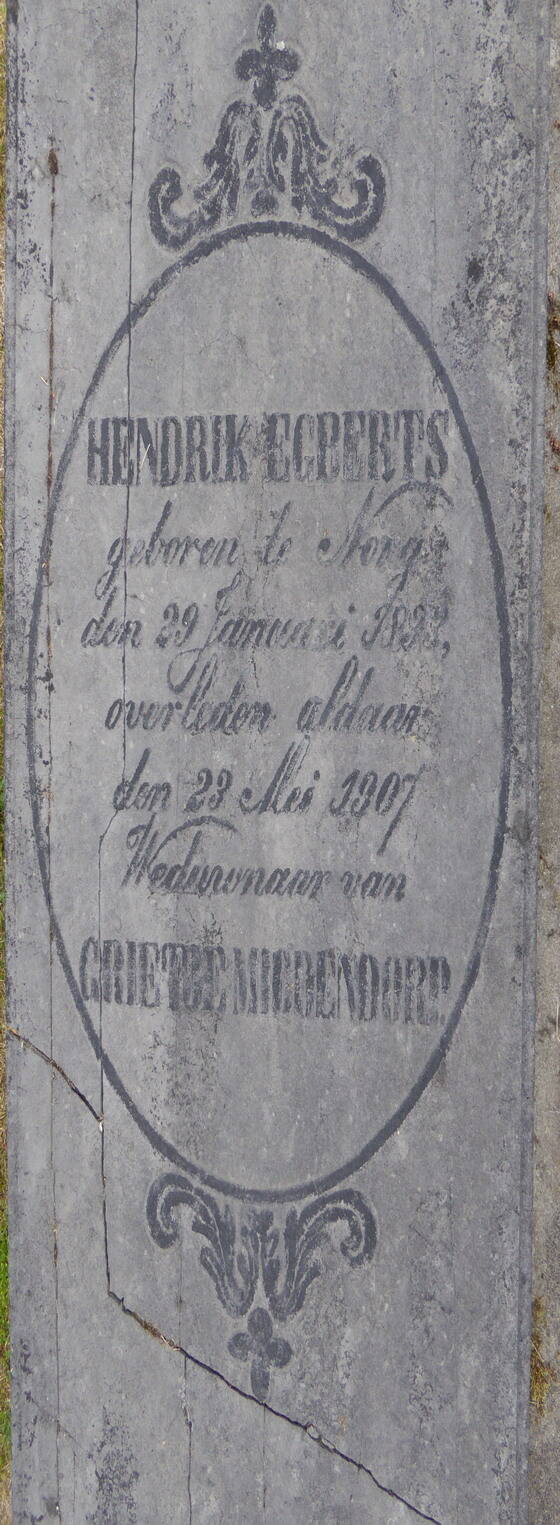 HENDRIK EGBERTS
geboren te Norg
den 29 Januari 1822,
overleden aldaar
den 23 Mei 1907
Weduwnaar van
GRIETJE MIGGENDORP.